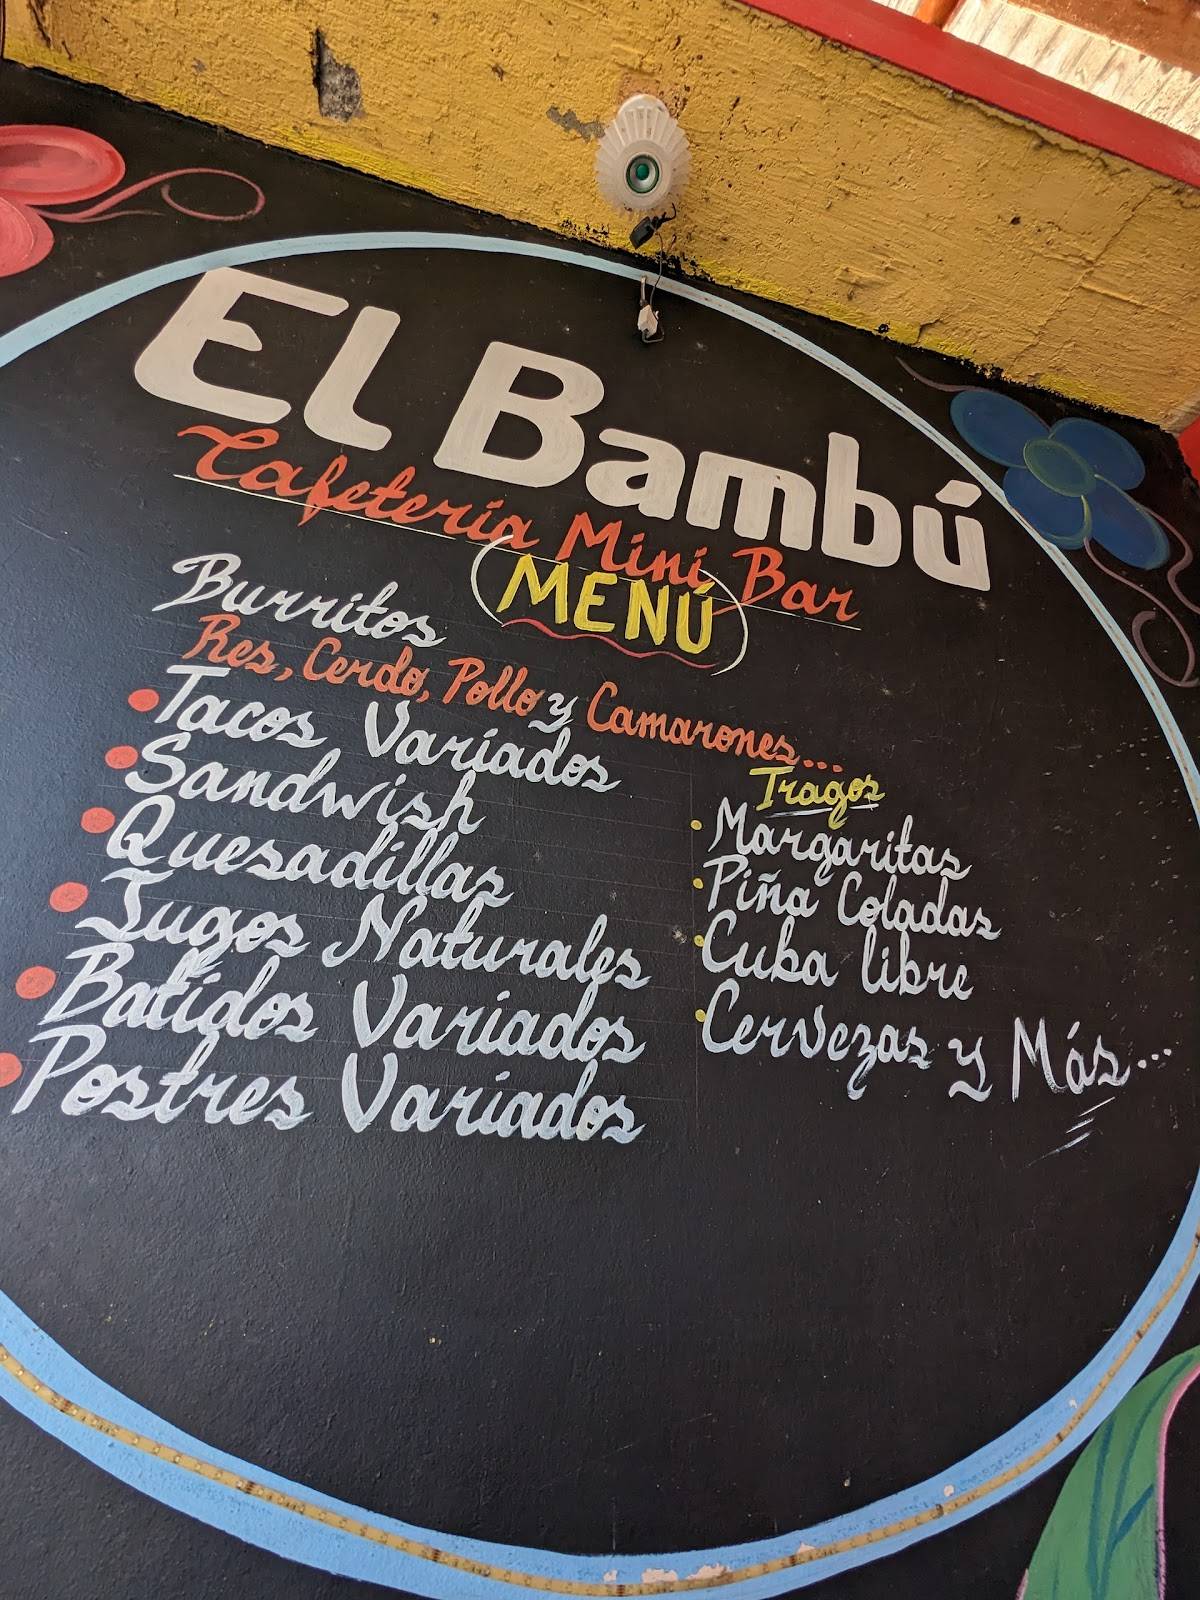 El Bambú
Cafetería Mini Bar
(MENÚ)
Burritos
Res, Cerdo, Pollo y Camarones...
Tacos Variados
Sandwish
Quesadillas
Jugos Naturales
Batidos Variados
Postres Variados
Tragos
Margaritas
Piña Coladas
Cuba libre
Cervezas y Más...